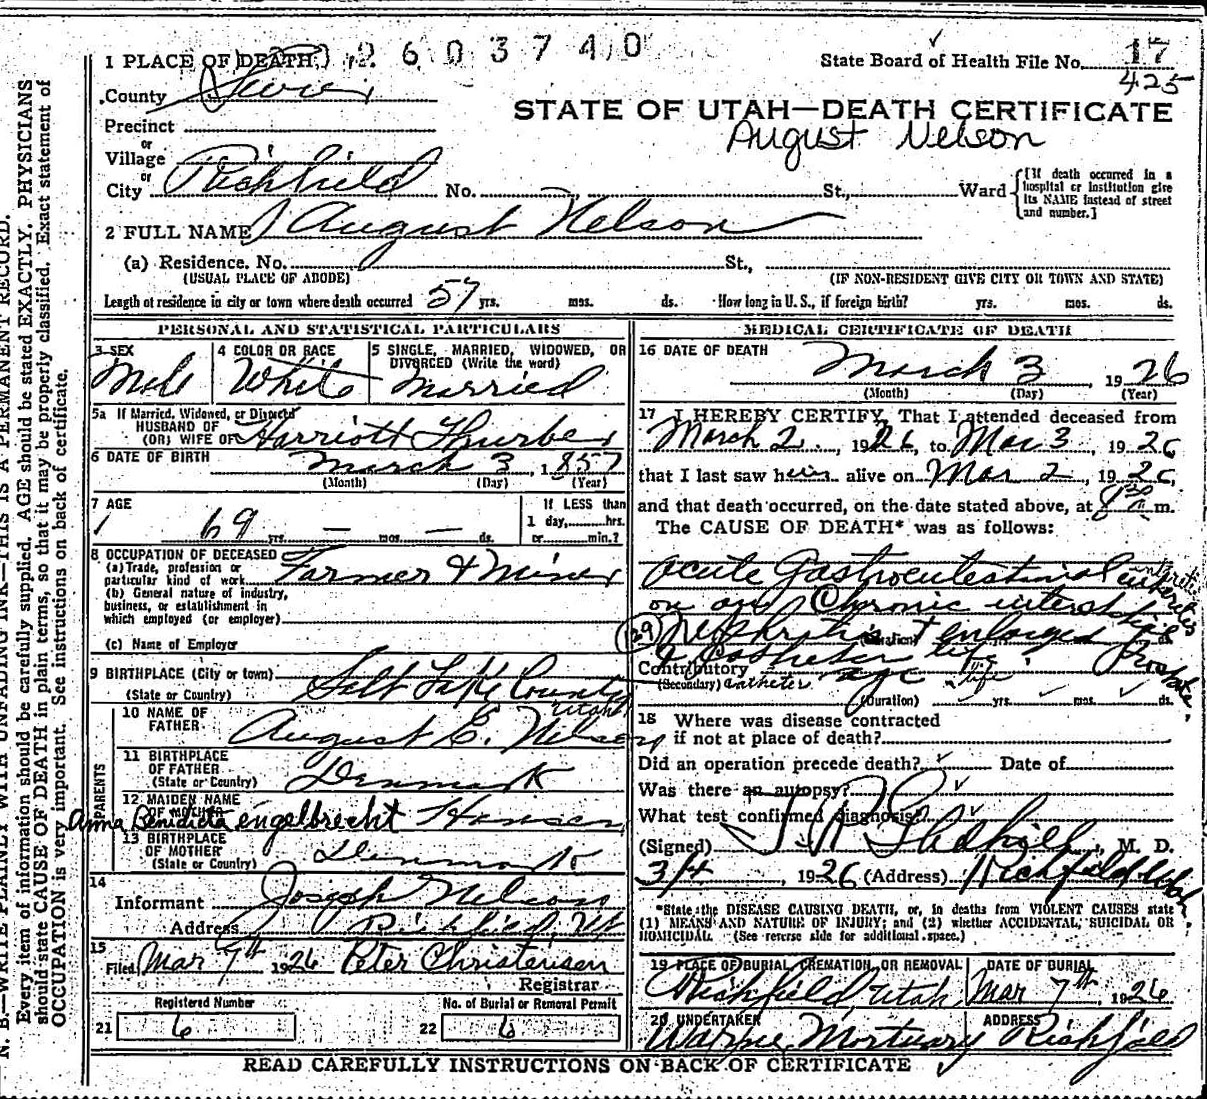 1 PLACE OF DEATH
2603740
State Board of Health File No. 17
425
County Sevier
STATE OF UTAH—DEATH CERTIFICATE
August Nelson
Precinct
or
Village
or
City Richfield No. St., Ward
[If death occurred in a hospital or institution give its NAME instead of street and number.]
2 FULL NAME August Nelson
(a) Residence. No. St.,
(USUAL PLACE OF ABODE) (IF NON-RESIDENT GIVE CITY OR TOWN AND STATE)
Length of residence in city or town where death occurred 57 yrs. mos. ds. How long in U. S., if foreign birth? yrs. mos. ds.
PERSONAL AND STATISTICAL PARTICULARS
3 SEX
Male
4 COLOR OR RACE
White
5 SINGLE, MARRIED, WIDOWED, OR DIVORCED (Write the word)
Married
5a If Married, Widowed, or Divorced
HUSBAND OF
(OR) WIFE OF Harriott Thurber
6 DATE OF BIRTH March 3, 1857
(Month) (Day) (Year)
7 AGE
69 yrs. — mos. — ds.
If LESS than
1 day, hrs.
or min.?
8 OCCUPATION OF DECEASED
(a) Trade, profession or
particular kind of work Farmer & Miner
(b) General nature of industry,
business, or establishment in
which employed (or employer)
(c) Name of Employer
9 BIRTHPLACE (City or town) Salt Lake County
(State or Country) Utah
PARENTS
10 NAME OF
FATHER August E. Nelson
11 BIRTHPLACE
OF FATHER
(State or Country) Denmark
12 MAIDEN NAME
OF MOTHER
Anna Benedicta engelbrecht Hansen
13 BIRTHPLACE
OF MOTHER
(State or Country) Denmark
14
Informant Joseph Nelson
Address Richfield, Ut
15
Filed Mar 7th 1926 Peter Christensen
Registrar
Registered Number
21 6
No. of Burial or Removal Permit
22 6
MEDICAL CERTIFICATE OF DEATH
16 DATE OF DEATH
March 3, 1926
(Month) (Day) (Year)
17 I HEREBY CERTIFY, That I attended deceased from
March 2, 1926, to Mar 3, 1926
that I last saw him alive on Mar 2, 1926,
and that death occurred, on the date stated above, at 8 30 a m.
The CAUSE OF DEATH* was as follows:
Acute Gastrointestinal enteritis
on an Chronic interstitial
129 Nephritis & enlarged Prostate.
(Duration) ds
Contributory age
(Secondary) Catheter life
(Duration) yrs. mos. ds.
18 Where was disease contracted
if not at place of death?
Did an operation precede death? Date of
Was there an autopsy?
What test confirmed diagnosis?
(Signed) M. D.
3/4, 1926 (Address) Richfield Utah
*State the DISEASE CAUSING DEATH, or, in deaths from VIOLENT CAUSES state
(1) MEANS AND NATURE OF INJURY; and (2) whether ACCIDENTAL, SUICIDAL OR
HOMICIDAL. (See reverse side for additional space.)
19 PLACE OF BURIAL, CREMATION, OR REMOVAL
Richfield, Utah
DATE OF BURIAL
Mar 7th, 1926
20 UNDERTAKER
Mortuary
ADDRESS
Richfield
READ CAREFULLY INSTRUCTIONS ON BACK OF CERTIFICATE
N. B.—WRITE PLAINLY WITH UNFADING INK—THIS IS A PERMANENT RECORD.
Every item of information should be carefully supplied. AGE should be stated EXACTLY. PHYSICIANS
should state CAUSE OF DEATH in plain terms, so that it may be properly classified. Exact statement of
OCCUPATION is very important. See instructions on back of certificate.